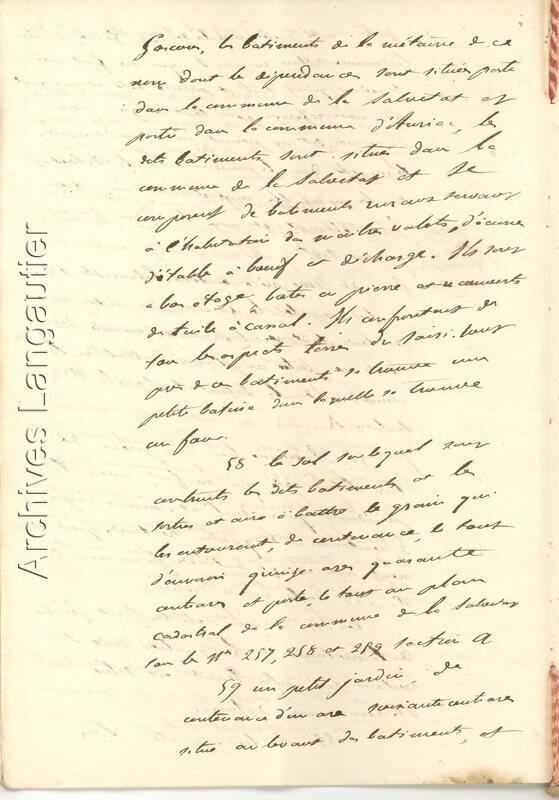 Gascons, les batiments de la métairie de ce
nom dont les dépendances sont situées partie
dans la commune de la Salvetat et
partie dans la commune d'Auriac, les
dits batiments sont situés dans la
commune de la Salvetat et se
composent de batiments ruraux servant
à l'habitation des maitres valets, d'écurie
d'étable à boeuf et décharge. Ils sont
a bas étage batis en pierre et recouverts
de tuile à canal. Ils confrontent de
tous les aspects terres du saisi. tout
près de ces batiments se trouve une
petite batisse dans laquelle se trouve
un four.
58 le sol sur lequel sont
construits les dits batiments et les
sorties et aire à battre le grain qui
les entourent, de contenance, le tout
d'environ quinze ares quarante
centiares et porté, le tout au plan
cadastral de la commune de la Salvetat
sous les Nos 257, 258 et 259 section A
59 un petit jardin, de
contenance d'un are soixante centiares
situé au levant des batiments, et
Archives Langautier